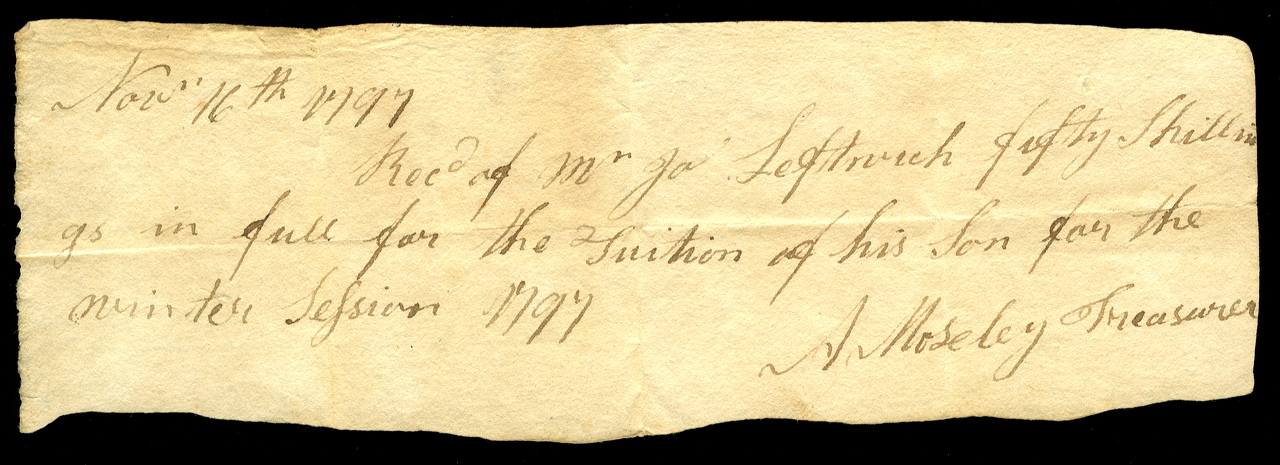 Novr 16th 1797
Recd of Mr Jo Leftwich fifty Shillin
gs in full for the Tuition of his Son for the
winter Seſsion 1797
A Moseley Treasurer